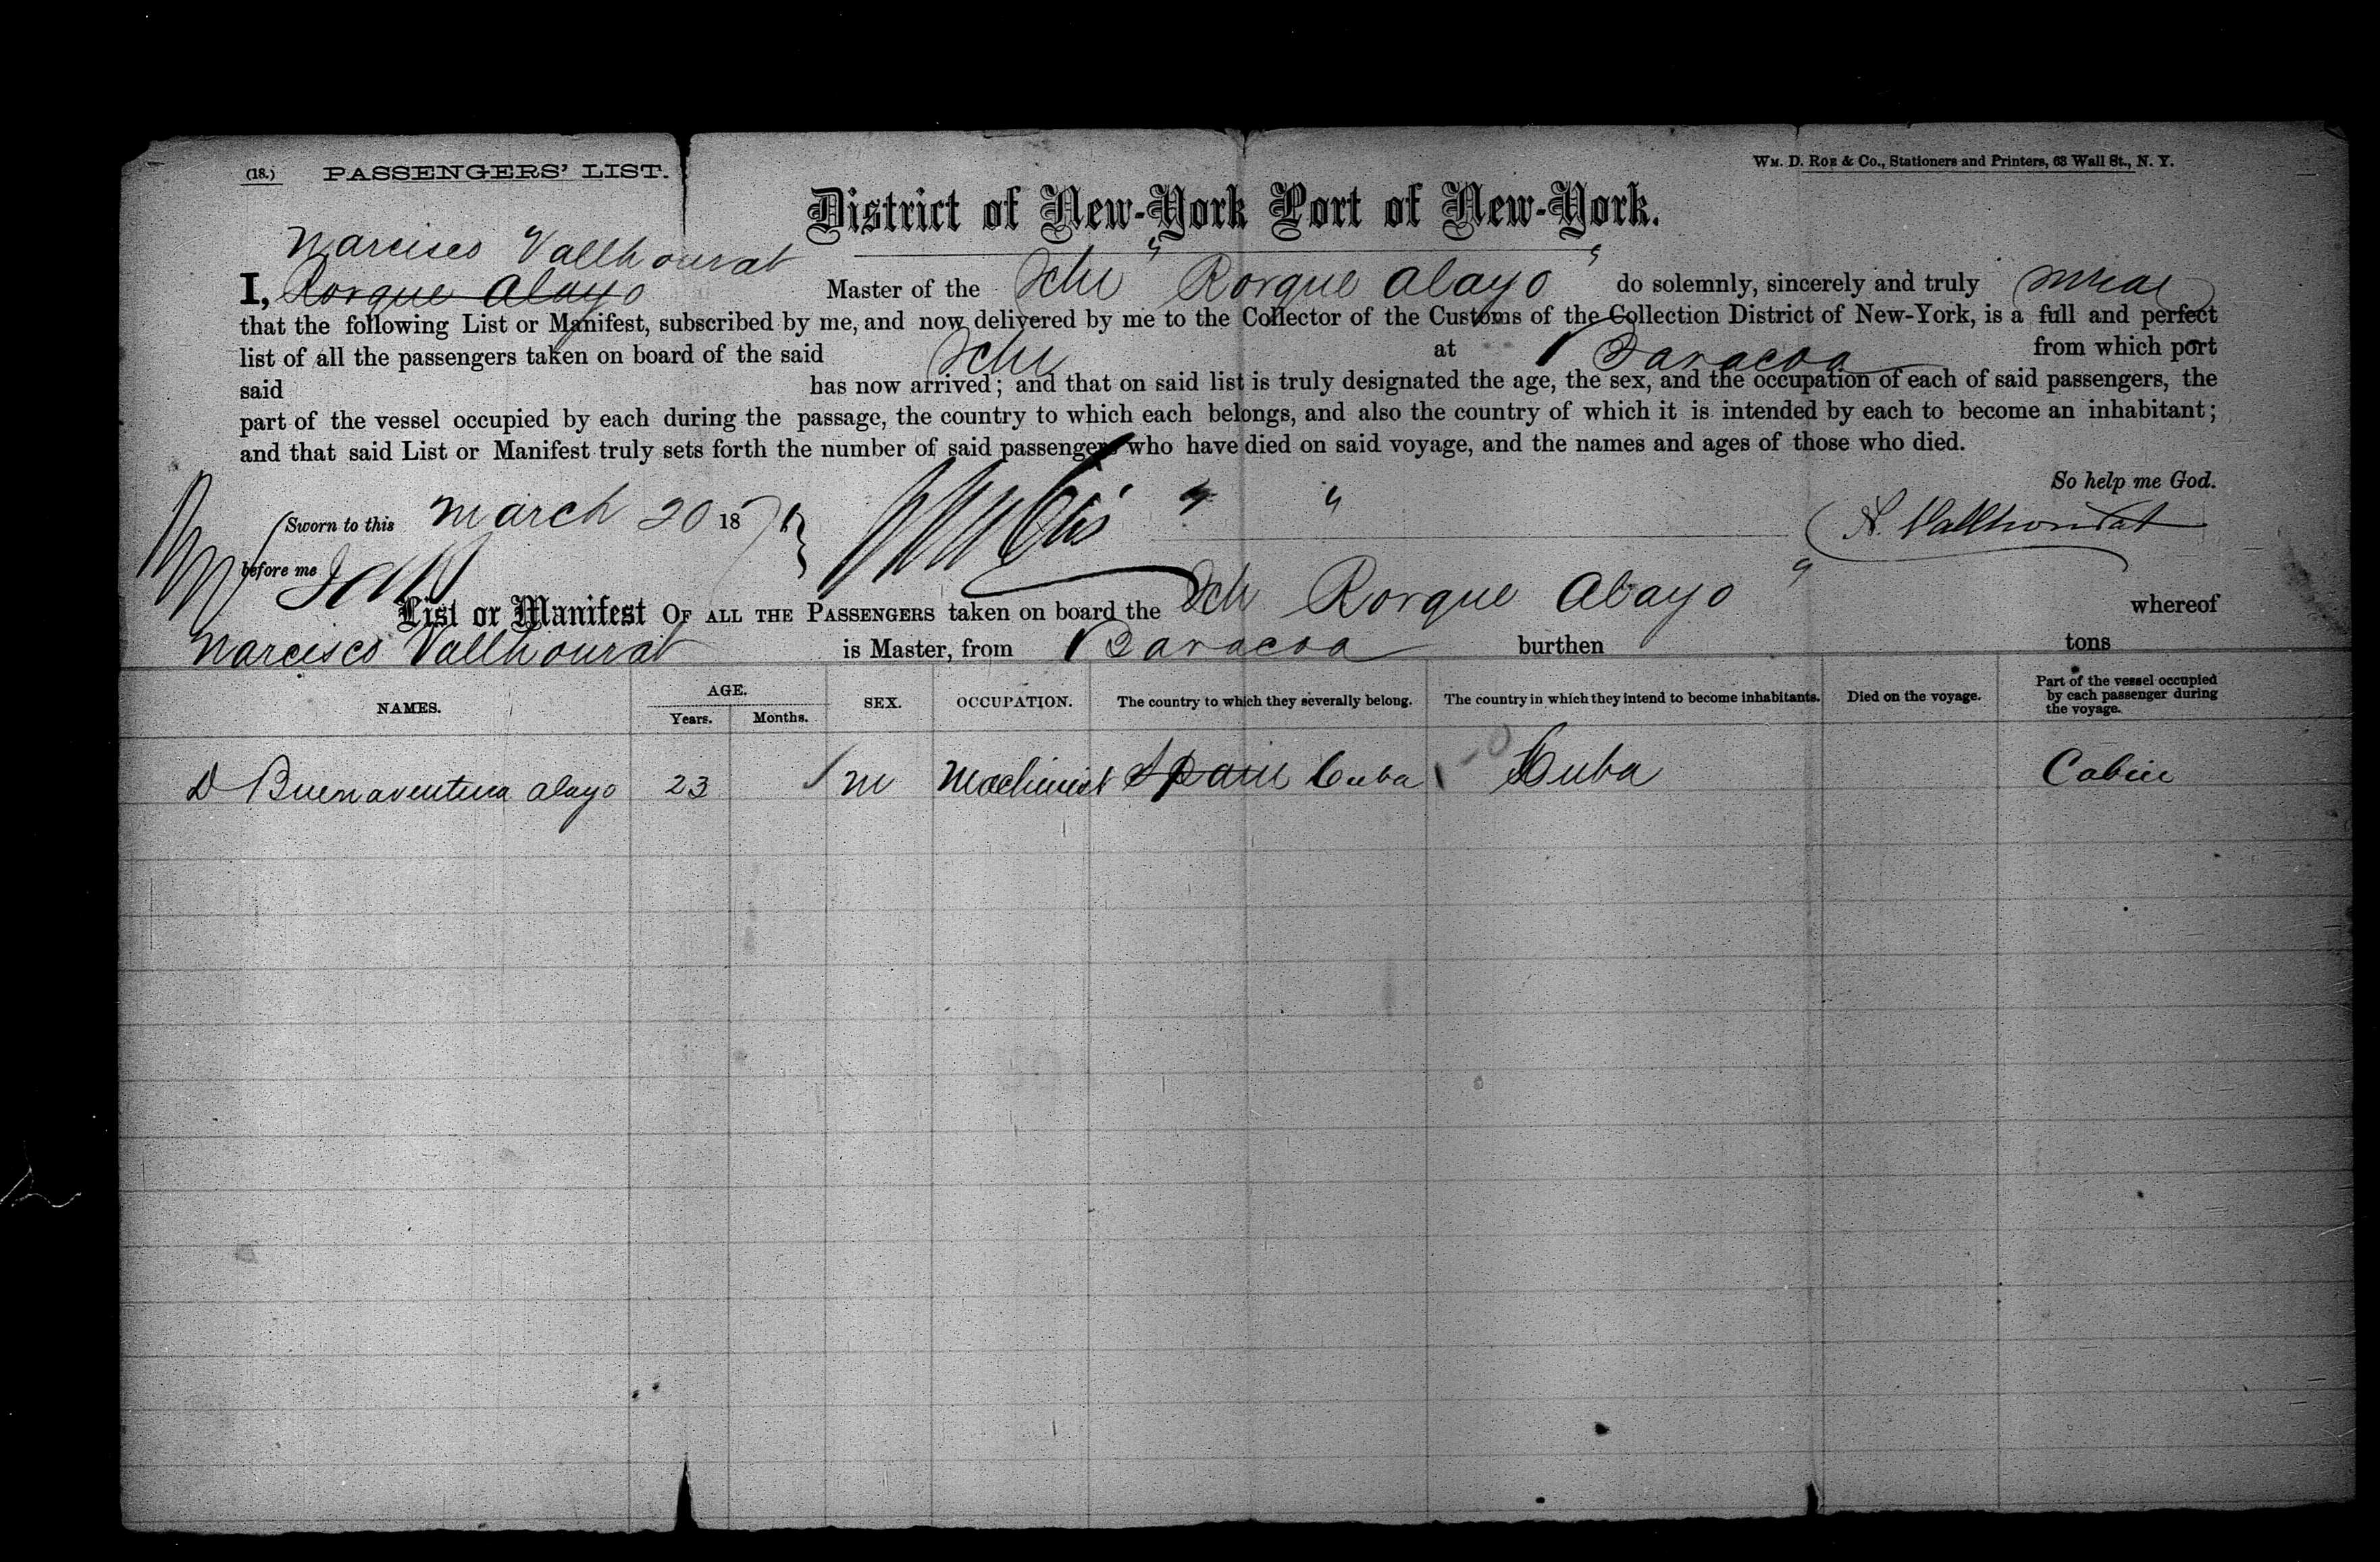 (18.) PASSENGERS' LIST.
WM. D. ROE & CO., Stationers and Printers, 63 Wall St., N. Y.
District of New-York Port of New-York.
Narciseo Vallhourat
I, Rorque Alayo Master of the Sch " Rorque Alayo " do solemnly, sincerely and truly swear
that the following List or Manifest, subscribed by me, and now delivered by me to the Collector of the Customs of the Collection District of New-York, is a full and perfect
list of all the passengers taken on board of the said Sch at Baracoa from which port
said has now arrived; and that on said list is truly designated the age, the sex, and the occupation of each of said passengers, the
part of the vessel occupied by each during the passage, the country to which each belongs, and also the country of which it is intended by each to become an inhabitant;
and that said List or Manifest truly sets forth the number of said passengers who have died on said voyage, and the names and ages of those who died.
So help me God.
Sworn to this March 20 187 N. Vallhourat
before me
List or Manifest OF ALL THE PASSENGERS taken on board the Sch Rorque Alayo " whereof
Narcisco Vallhourat is Master, from Baracoa burthen tons
NAMES. AGE. Years. Months. SEX. OCCUPATION. The country to which they severally belong. The country in which they intend to become inhabitants. Died on the voyage. Part of the vessel occupied by each passenger during the voyage.
D Buenaventura Alayo 23 M Machinist Spain Cuba Cuba Cabin